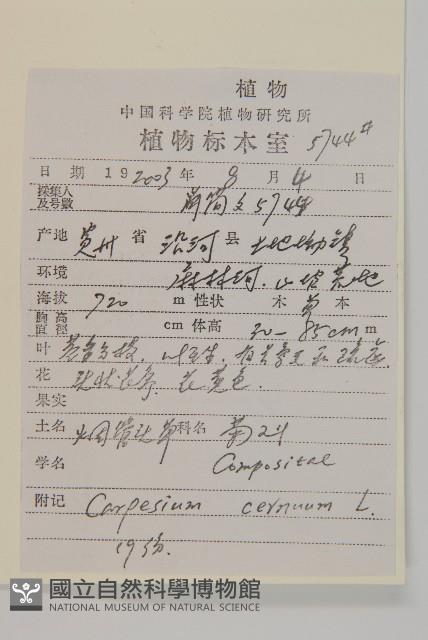 植物
中国科学院植物研究所
植物标本室 5744#
日期 19 2003 年 8 月 4 日
採集人及号数 简 文 5744
产地 贵州 省 沿河 县
环境 麻林河. 山坡
海拔 720 m 性状 木 草 本
胸高直徑 cm 体高 30-85cm m
叶
花 花黄色.
果实
土名 烟管头草 科名 菊科
学名 Compositae
附记 Carpesium cernuum L.
19份.
國立自然科學博物館
NATIONAL MUSEUM OF NATURAL SCIENCE